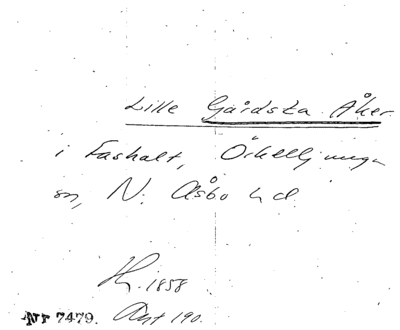 Lille Gårdska Åker
i Fashalt, Örkelljunga
sn, N. Åsbo hd
H. 1858
Nr 7479. Akt 190.